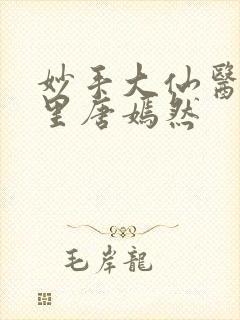 妙手大仙醫
里唐嫣然
毛岸龍